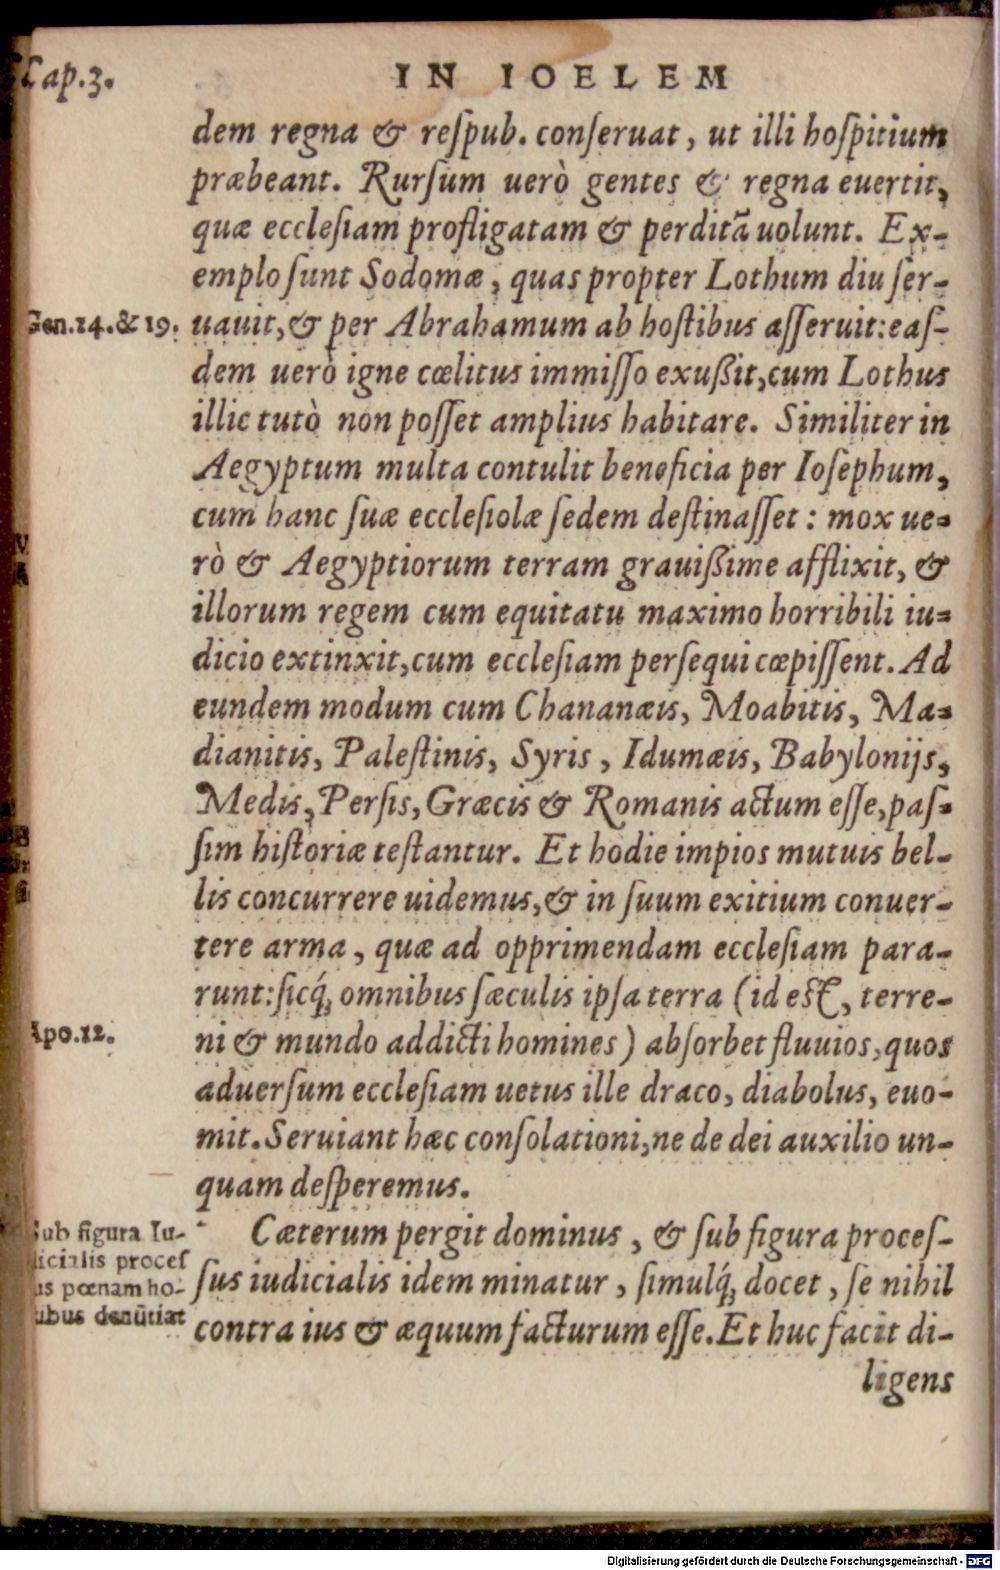 Cap.3.
IN IOELEM
dem regna & reſpub. conſeruat, ut illi hoſpitium
præbeant. Rurſum uerò gentes & regna euertit,
quæ eccleſiam profligatam & perditā uolunt. Ex-
emplo ſunt Sodomæ, quas propter Lothum diu ſer-
Gen.14.& 19.
uauit,& per Abrahamum ab hoſtibus aſſeruit:eaſ-
dem uerò igne cœlitus immiſſo exußit,cum Lothus
illic tutò non poſſet amplius habitare. Similiter in
Aegyptum multa contulit beneficia per Ioſephum,
cum hanc ſuæ eccleſiolæ ſedem deſtinaſſet : mox ue-
rò & Aegyptiorum terram grauißime afflixit, &
illorum regem cum equitatu maximo horribili iu-
dicio extinxit,cum eccleſiam perſequi cœpiſſent. Ad
eundem modum cum Chananæis, Moabitis, Ma-
dianitis, Paleſtinis, Syris, Idumæis, Babylonijs,
Medis, Perſis, Græcis & Romanis actum eſſe,paſ-
ſim hiſtoriæ teſtantur. Et hodie impios mutuis bel-
lis concurrere uidemus,& in ſuum exitium conuer-
tere arma, quæ ad opprimendam eccleſiam para-
runt:ſicq́; omnibus ſæculis ipſa terra (id eſt, terre-
Apo.12.
ni & mundo addicti homines) abſorbet fluuios,quos
aduerſum eccleſiam uetus ille draco, diabolus, euo-
mit.Seruiant hæc conſolationi,ne de dei auxilio un-
quam deſperemus.
Sub figura Iu-
dicialis proceſ
us pœnam ho-
ſtibus denūtiat
Cæterum pergit dominus, & ſub figura proceſ-
ſus iudicialis idem minatur, ſimulq́; docet, ſe nihil
contra ius & æquum facturum eſſe.Et huc facit di-
ligens
Digitalisierung gefördert durch die Deutsche Forschungsgemeinschaft - DFG